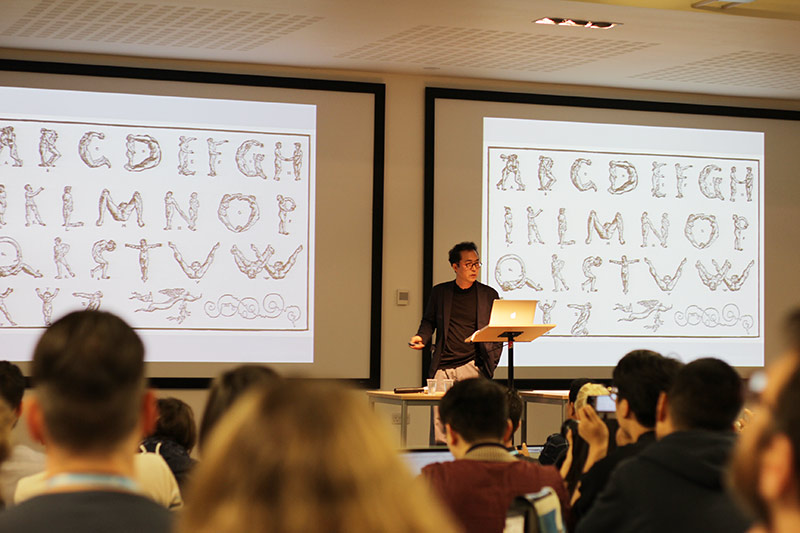 A B C D E F G H
I K L M N O P
Q R S T V W
X Y Z
A B C D E F G H
I K L M N O P
Q R S T V W
X Z